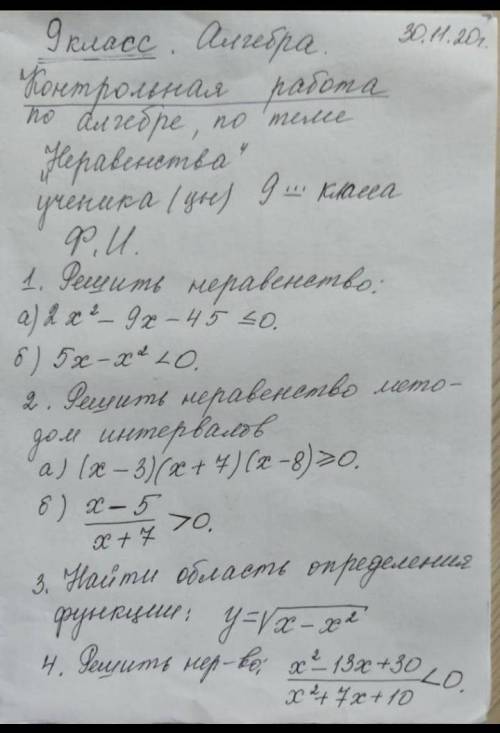 9 класс. Алгебра. 30.11.20г.
Контрольная работа
по алгебре, по теме
„Неравенства"
ученика (цы) 9 ... класса
Ф.И.
1. Решить неравенство:
а) 2x² - 9x - 45 ≤ 0.
б) 5x - x² < 0.
2. Решить неравенство мето-
дом интервалов
а) (x - 3)(x + 7)(x - 8) ≥ 0.
б) (x - 5)/(x + 7) > 0.
3. Найти область определения
функции: y = √(x - x²)
4. Решить нер-во: (x² - 13x + 30)/(x² + 7x + 10) < 0.